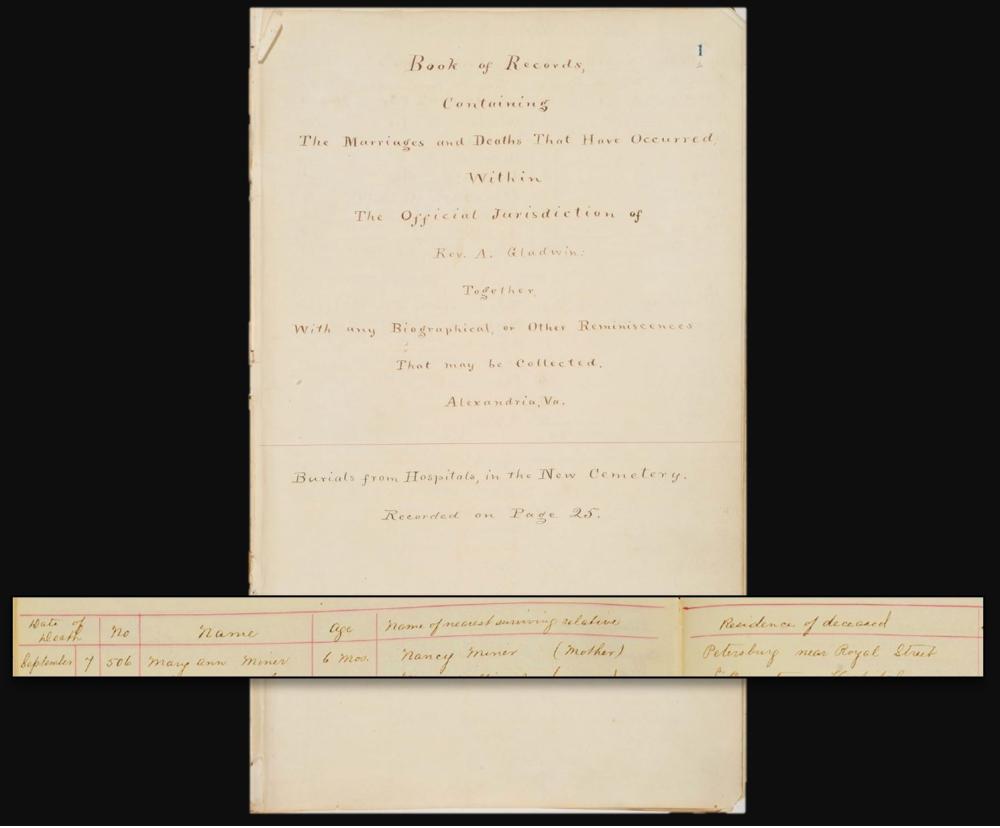 1
Book of Records,
Containing
The Marriages and Deaths That Have Occurred,
Within
The Official Jurisdiction of
Rev. A. Gladwin:
Together,
With any Biographical, or Other Reminiscences
That may be Collected.
Alexandria, Va.
Burials from Hospitals, in the New Cemetery.
Recorded on Page 25.
Date of Death No Name Age Name of nearest surviving relative Residence of deceased
September 7 506 Mary Ann Miner 6 Mos. Nancy Miner (Mother) Petersburg near Royal Street